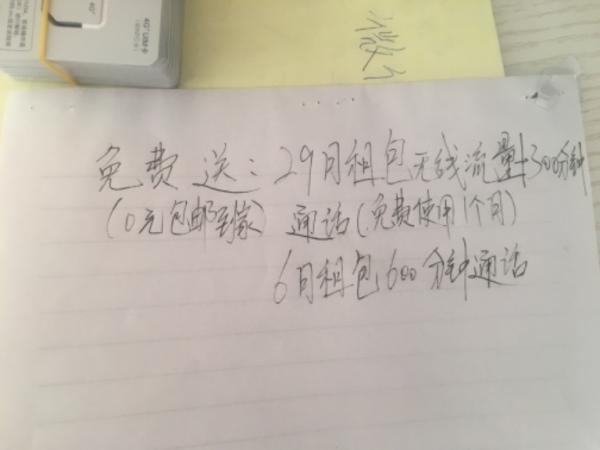 4G USIM卡
微
免费送:29月租包无线流量+300分钟
(0元包邮到家) 通话(免费使用1个月)
6月租包600分钟通话